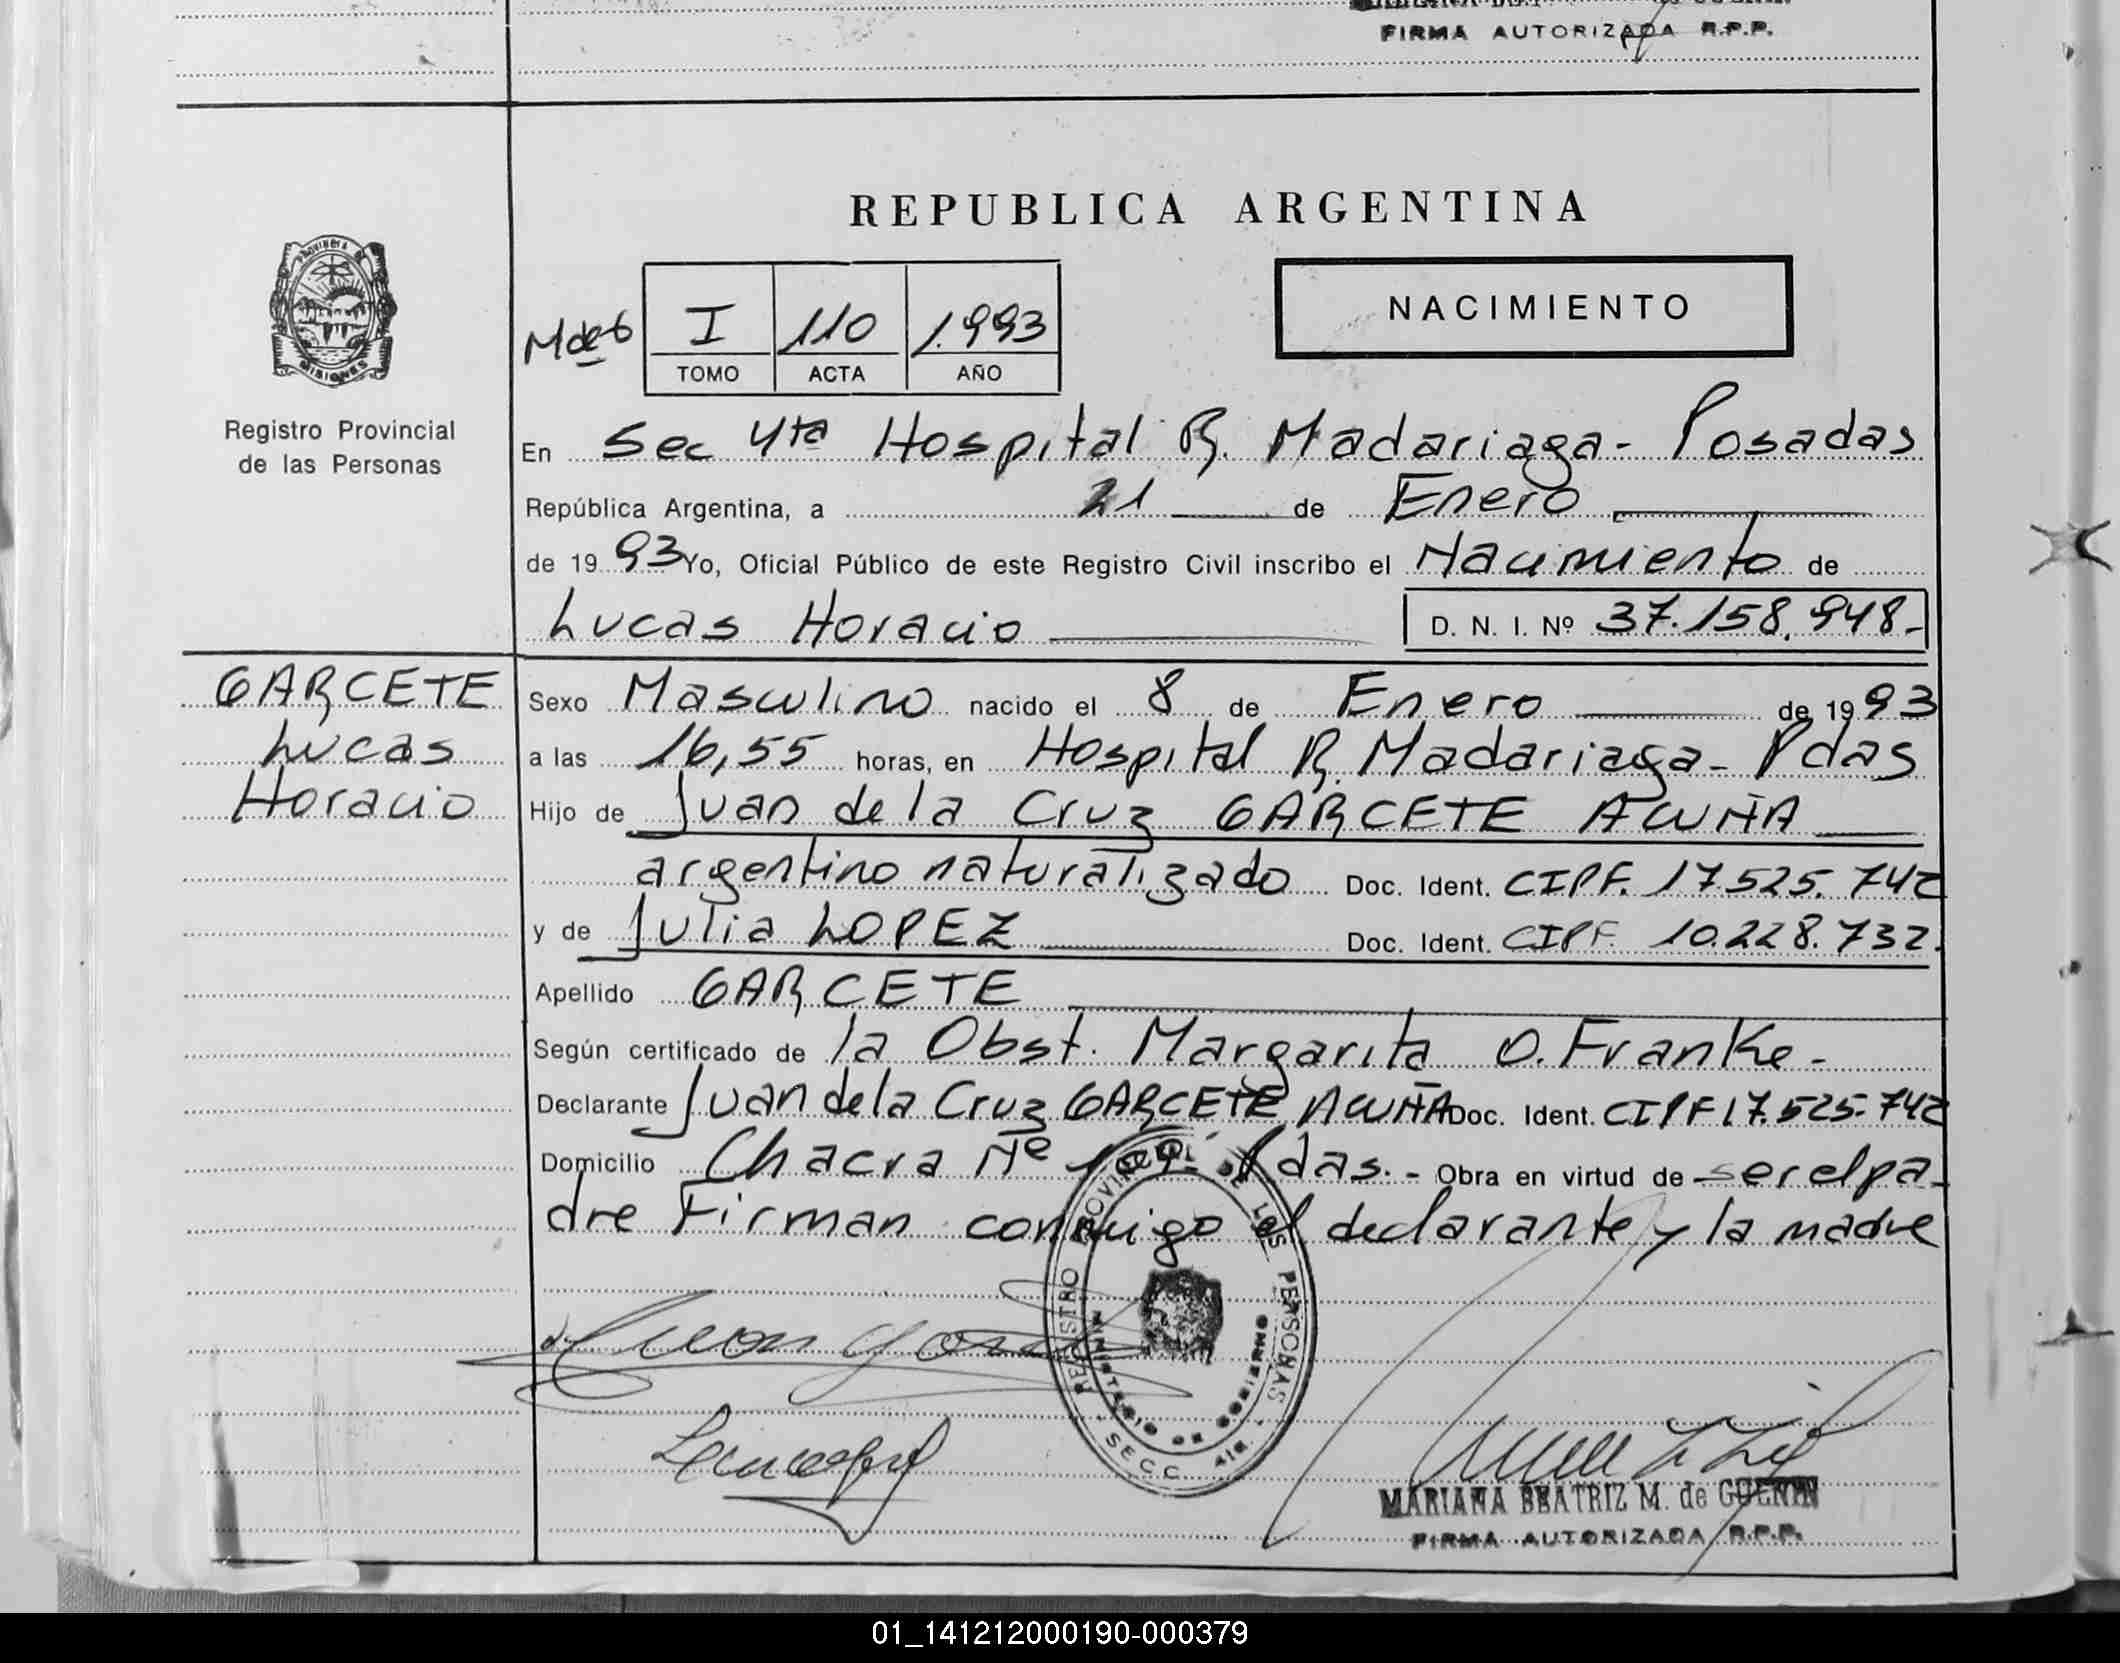 FIRMA AUTORIZADA R.P.P.
REPUBLICA ARGENTINA
PROVINCIA DE
MISIONES
Registro Provincial
de las Personas
I 110 1.993
TOMO ACTA AÑO
NACIMIENTO
En Sec 4ta Hospital R. Madariaga - Posadas
República Argentina, a 21 de Enero
de 19 93 Yo, Oficial Público de este Registro Civil inscribo el Nacimiento de
Lucas Horacio D. N. I. Nº 37.158.948.-
GARCETE
Lucas
Horacio
Sexo Masculino nacido el 8 de Enero de 19 93
a las 16,55 horas, en Hospital R. Madariaga - Pdas
Hijo de Juan de la Cruz GARCETE ACUÑA
argentino naturalizado Doc. Ident. CIPF. 17.525.742
y de Julia LOPEZ Doc. Ident. CIPF. 10.228.732.
Apellido GARCETE
Según certificado de la Obst. Margarita O. Franke -
Declarante Juan de la Cruz GARCETE ACUÑA Doc. Ident. CIPF 17.525.742
Domicilio Chacra Nº Pdas. - Obra en virtud de ser el pa-
dre Firman conmigo el declarante y la madre
REGISTRO PROVINCIAL DE LAS PERSONAS
MINISTERIO DE GOBIERNO
SECC. 4ta.
MARIANA BEATRIZ M. de GUERIN
FIRMA AUTORIZADA R.P.P.
01_141212000190-000379